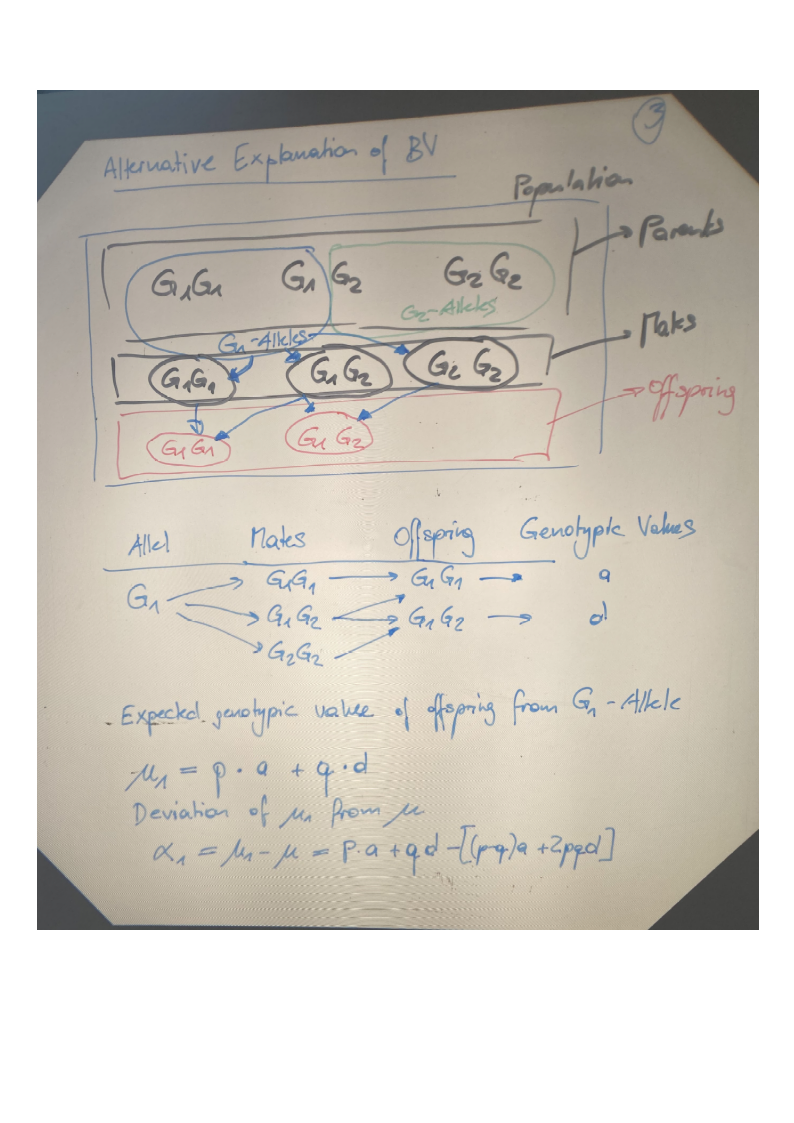 3
Alternative Explanation of BV
Population
Parents
G₁G₁ G₁ G₂ G₂ G₂
G₂-Alleles
G₁-Alleles
Mates
G₁G₁ G₁ G₂ G₂ G₂
Offspring
G₁ G₁ G₁ G₂
Allel Mates Offspring Genotypic Values
G₁ G₁G₁ → G₁ G₁ → a
G₁ G₂ → G₁ G₂ → d
G₂G₂
Expected genotypic value of offspring from G₁ - Allele
μ₁ = p · a + q · d
Deviation of μ₁ from μ
α₁ = μ₁ - μ = p · a + q d - [(p-q)a + 2pqd]